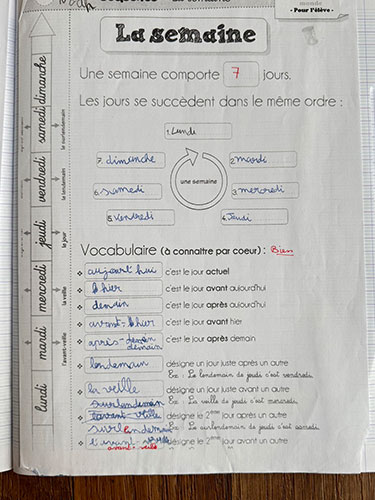 La semaine
- Pour l'élève -
Une semaine comporte 7 jours.
Les jours se succèdent dans le même ordre :
1. Lundi
7. dimanche
2. mardi
une semaine
6. samedi
3. mercredi
5. Vendredi
4. Jeudi
Vocabulaire (à connaître par coeur) : Bien
aujourt'hui c'est le jour actuel
hier c'est le jour avant aujourd'hui
demain c'est le jour après aujourd'hui
avant-hier c'est le jour avant hier
après-demain c'est le jour après demain
lendemain désigne un jour juste après un autre
Ex : Le lendemain de jeudi c'est vendredi.
la veille désigne un jour juste avant un autre
surlendemain Ex : La veille de jeudi c'est mercredi.
désigne le 2ème jour après un autre
surlendemain Ex : Le surlendemain de jeudi c'est samedi.
l'avant-veille désigne le 2ème jour avant un autre
avant-veille
lundi mardi mercredi jeudi vendredi samedi dimanche
l'avant-veille
la veille
le jour
le lendemain
le surlendemain